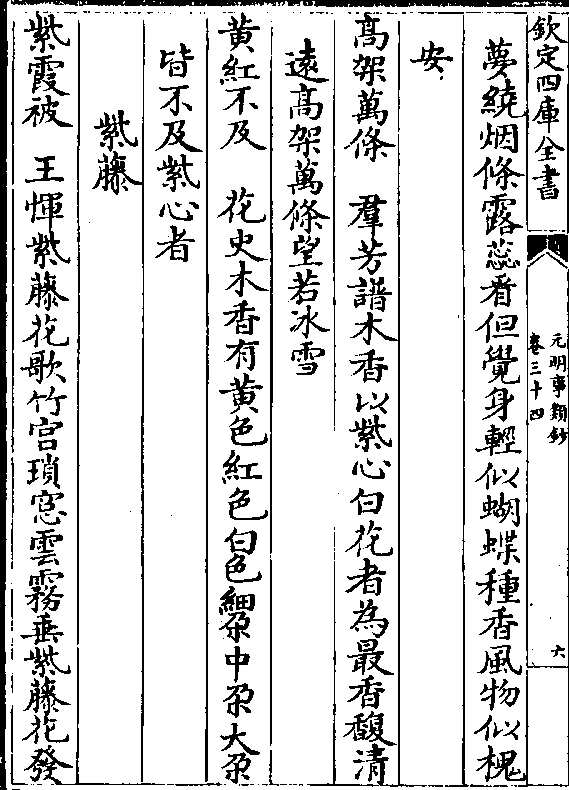 欽定四庫全書
元明事類鈔
卷三十四
六
夢繞烟條露蕊看但覺身輕似蝴蝶種香風物似槐
安
髙架萬條　羣芳譜木香以紫心白花者為最香馥清
遠髙架萬條望若冰雪
黄紅不及　花史木香有黄色紅色白色細朶中朶大朶
皆不及紫心者
紫藤
紫霞被　王惲紫藤花歌竹宫瑣窓雲霧垂紫藤花發